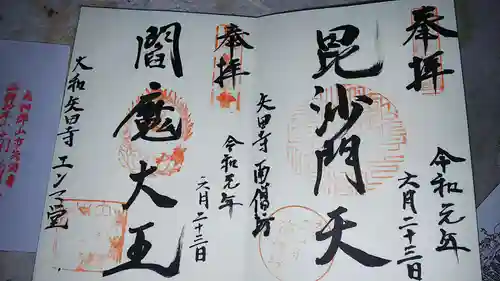 奉拝
令和元年
六月二十三日
毘沙門天
矢田寺 西僧坊
奉拝
令和元年
六月二十三日
閻魔大王
大和矢田寺 エンマ堂